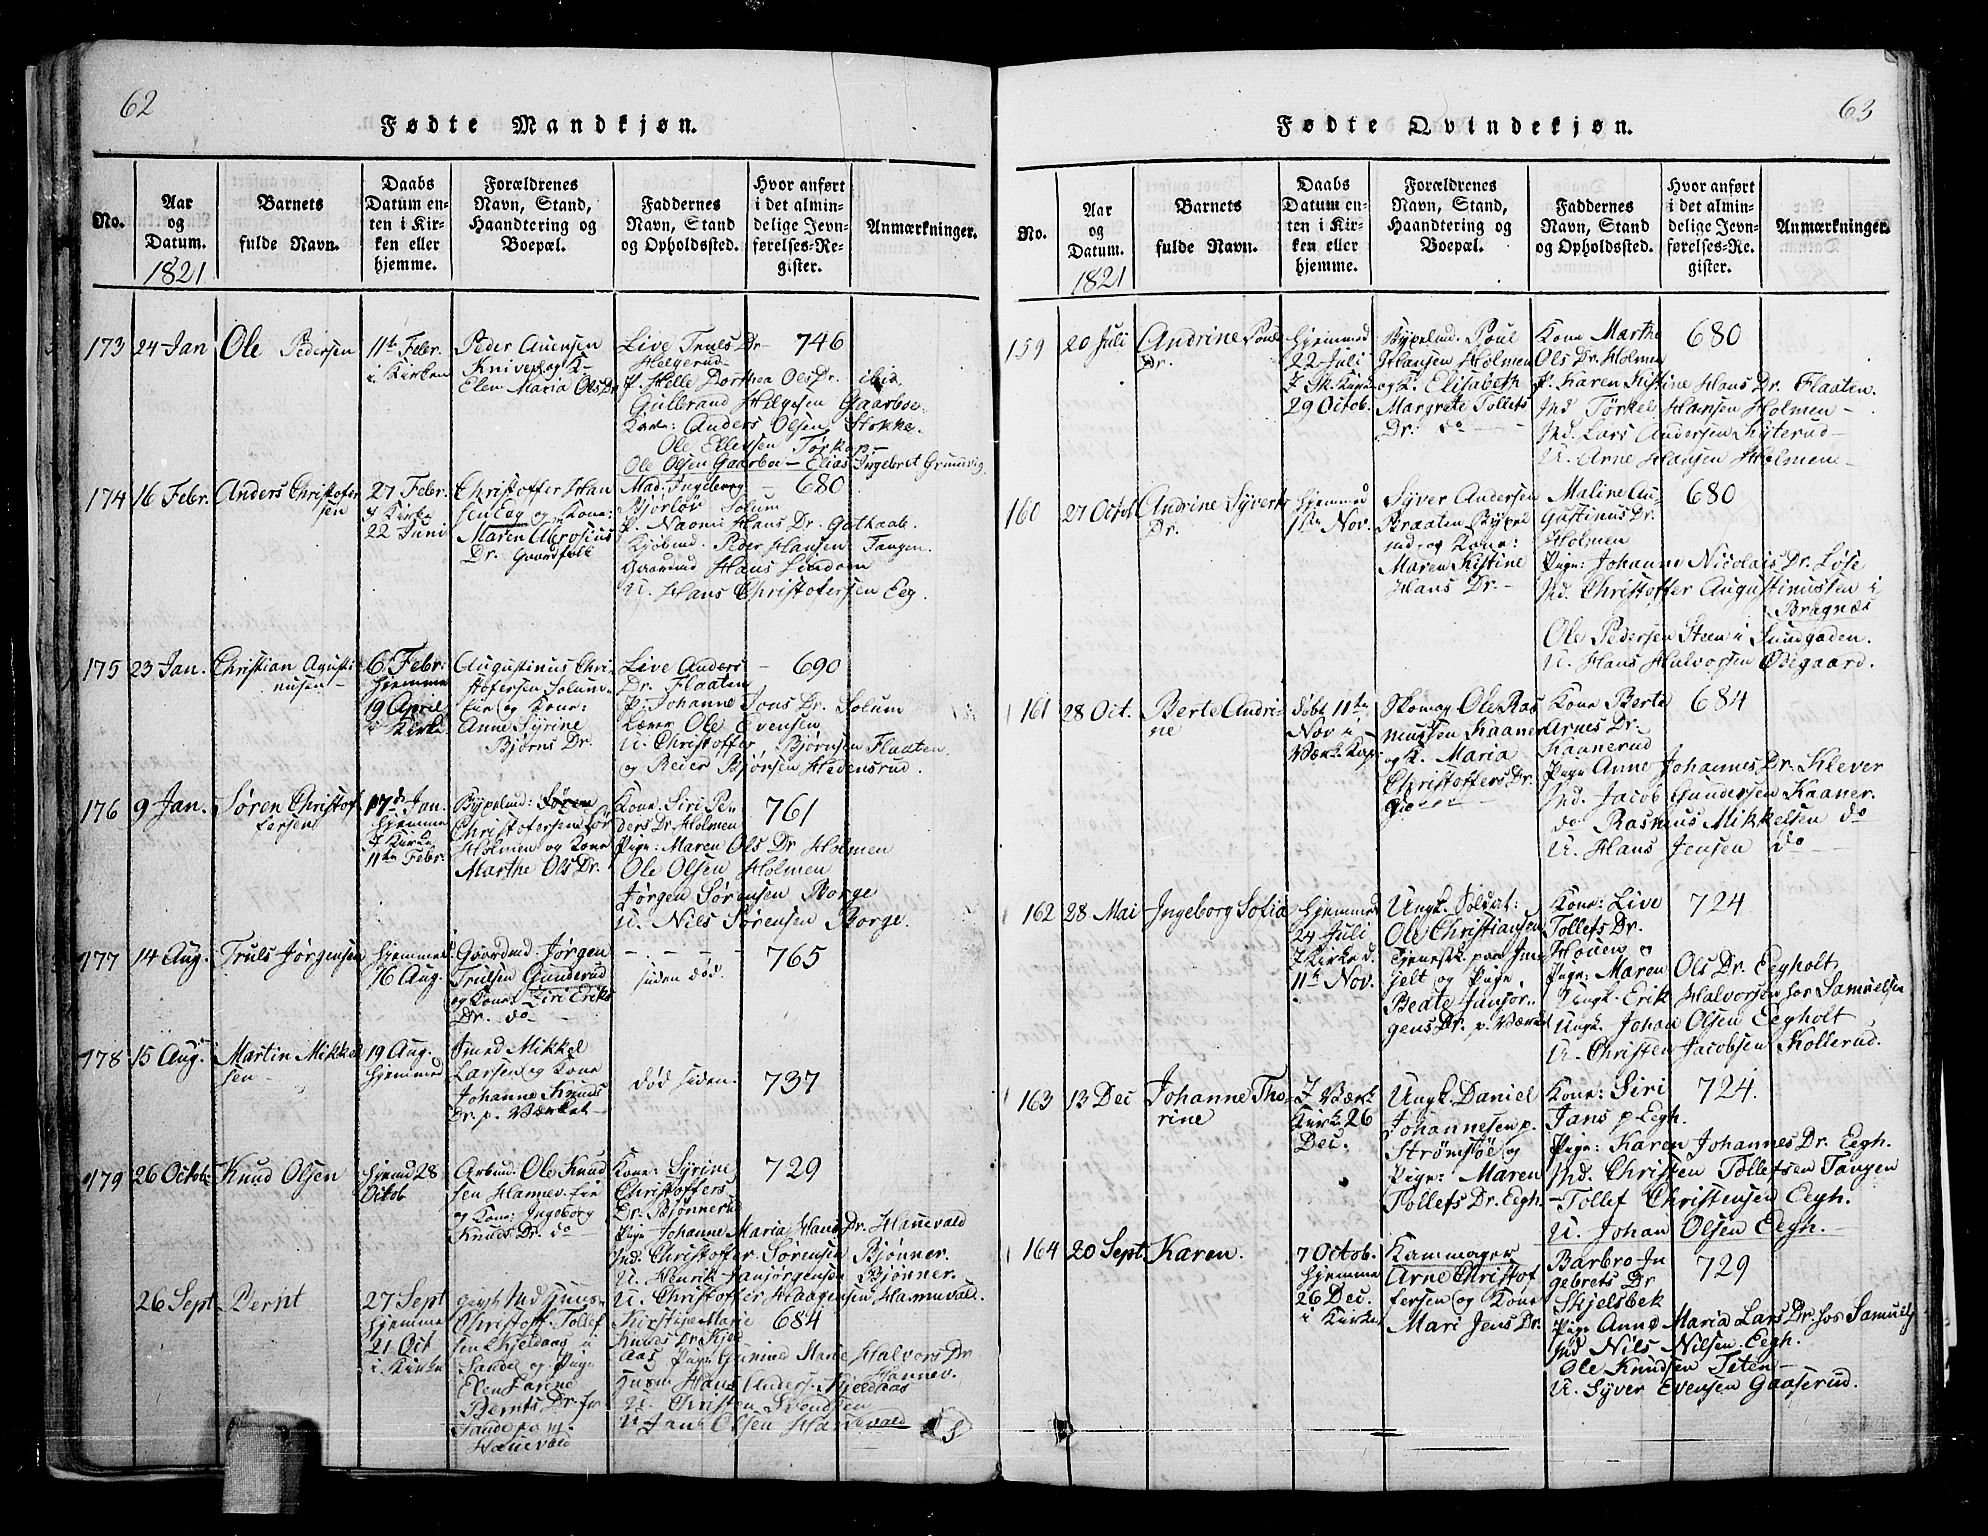 62
Fødte Mandkjøn.
No.
Aar
og
Datum.
1821
Barnets
fulde Navn.
Daabs
Datum en-
ten i Kir-
ken eller
hjemme.
Forældrenes
Navn, Stand,
Haandtering og
Boepæl.
Faddernes
Navn, Stand
og Opholdssted.
Hvor anført
i det almin-
delige Jevn-
førelses-Re-
gister.
Anmærkninger.
173
24 Jan
Ole Pedersen
11te Febr.
i Kirken
Peder Auensen
Knive og K
Elen Maria Ols Dr
Live Truls Dr
Helgerud
P. Helle Dorthea Ols Dr. ibid.
Gulbrand Helgesen Gaarboe
Anders Olsen Stokke.
Ole Ellefsen Torkop
Ole Olsen Gaarboe - Elias Ingebret Grunvig
746
174
16 Febr.
Anders Christofer
sen
27 Febr.
i Kirke
22 Juni
Christoffer Han
sen Eeg og Kone:
Maren Abrosius
Dr. Gaardfolk
Mad. Ingeborg
Bjorløv Solum
P. Naomi Hans Dr. Gothaab.
Kjøbmd. Peder Hansen Tangen.
Gaarmd Hans Lindom
U. Hans Christofersen Eeg.
680
175
23 Jan.
Christian Agusti
nusen
6 Febr.
hjemme
19 April
i Kirke
Augustinus Chri
stofersen Solum
eie og Kone:
Anne Syrine
Bjørns Dr.
Live Anders
Dr. Flaaten
P. Johanne Jons Dr. Solum
Lærer Ole Evensen
U. Christoffer Bjørnsen Flaaten
og Reier Bjørsen Hedensrud.
690
176
9 Jan.
Søren Christof
fersen
17de Jan.
hjemme
I Kirke
11te Febr.
Bypelmd: Søren
Christofersen Sør
Holmen og Kone
Marthe Ols Dr.
Kone: Siri Pe
ders Dr. Holmen
Pige: Maren Ols Dr Holmen
Ole Olsen Holmen
Jørgen Sørensen Borge
U. Nils Sørensen Borge.
761
177
14 Aug.
Truls Jørgensen
hjemme
16 Aug.
Gaardmd Jørgen
Trulsen Gunderud
og Kone Siri Eriks
Dr. do
siden død.
765
178
15 Aug.
Martin Mikkel
sen
19 Aug.
hjemme
Smed Mikkel
Larsen og Kone
Johanne Knuds
Dr. p. Værket
død siden.
737
179
26 Octob:
Knud Olsen
hjemd 28
Octob
Arbmd: Ole Knud
sen Hannev. Eie
og Kone: Ingeborg
Knuds Dr. do
Kone: Syrine
Christoffers
Dr. Bjønnerud
Pige Johanne Maria Hans Dr. Hanevald
Md. Christoffer Sørensen Bjønner.
U. Henrik Janjørgensen Bjønner.
U. Christoffer Haagensen Hannevald.
729
26 Sept
Bernt
27 Sept
hjemme
21 Oct
i Kirke
Christoff Tollef
sen Kjeldaas i
Sande og Pige
Elen Larine
Bernts Dr. fr
Sande p. m.
Hanevald
Kirstine Marie
Knuds Dr. Kjeld
aas Pige Gunild Marie Halvors Dr
Hannev.
Hans Anders. Kjeldaas
U. Christen Svendsen
U. Jans Olsen Hannevald
684
63
Fødte Qvindekjøn.
No.
Aar
og
Datum.
1821
Barnets
fulde Navn.
Daabs
Datum en-
ten i Kir-
ken eller
hjemme.
Forældrenes
Navn, Stand,
Haandtering og
Boepæl.
Faddernes
Navn, Stand
og Opholdssted.
Hvor anført
i det almin-
delige Jevn-
førelses-Re-
gister.
Anmærkninger.
159
20 Juli
Andrine Pouls
Dr.
hjemmed
22 Juli
I Sk. Kirke
29 Octob.
Bypelmd. Poul
Johansen Holmen
og K. Elisabeth
Margrete Tollefs
Dr. do
Kone Marthe
Ols Dr. Holmen
P. Karen Kistine Hans Dr. Flaaten.
Md Törkel Hansen Holmen
Md. Lars Andersen Kyterud
U. Arne Hansen Holmen
680
160
27 Octob
Andrine Syvers
Dr.
hjemmed
1ste Nov.
Syver Andersen
Braaten Bypel
md. og Kone:
Maren Kistine
Hans Dr.
Maline Au
gustinus Dr.
Holmen
Pige: Johanne Nicolais Dr. Løse
Md. Christoffer Augustinussen i
Bragnæs
Ole Pedersen Steen i Sundgaden.
U. Hans Halvorsen Ødegaard.
680
161
28 Oct.
Berte Andri
ne
døbt 11te
Nov i
Værk. Kap.
Skomag Ole Ras
mussen Kaaner
og K. Maria
Christoffers Dr.
Kone Berte
Arnes Dr.
Kaanerud
Pige Anne Johannes Dr. Klever
Md. Jacob Gundersen Kaaner.
do Rasmus Mikkelsen do
U. Hans Jensen do
684
162
28 Mai
Ingeborg Sofia
hjemmed
24 Juli
I Kirke d.
11te Nov.
Ungk. Soldat:
Ole Christiansen
Tjenestk. paa Jm
gelt og Pige
Beate Janjør
gens Dr. p. Værket
Kone: Live
Tollefs Dr.
Houen
Pige: Maren Ols Dr. Eegholt
Ungk. Erik Halvorsen hos Samuelsen
Ungk. Johan Olsen Eegholt
U. Christen Jacobsen Kollerud.
724
163
13 Dec
Johanne Tho
rine
I Værk
Kirk. 26
Dec.
Ungk. Daniel
Johannesen p.
Strømsøe og
Pige: Maren
Tollefs Dr. Eegh.
Kone: Siri
Jans p Eegh.
Pige: Karen Johannes Dr. Eegh.
Md. Christen Tollefsen Tangen
Tollef Christensen Eegh.
U. Johan Olsen Eegh.
724.
164
20 Sept
Karen.
7 Octob.
hjemme
26 Dec.
i Kirke
Kammager
Arne Christof
fersen og Kone
Mari Jens Dr.
Barbro In
gebrets Dr
Skjelsbek
Pige Anne Maria Lars Dr. hos Samuels
Md Nils Nilsen Eegh.
Ole Knudsen Teten
U. Syver Evensen Gaaserud.
729